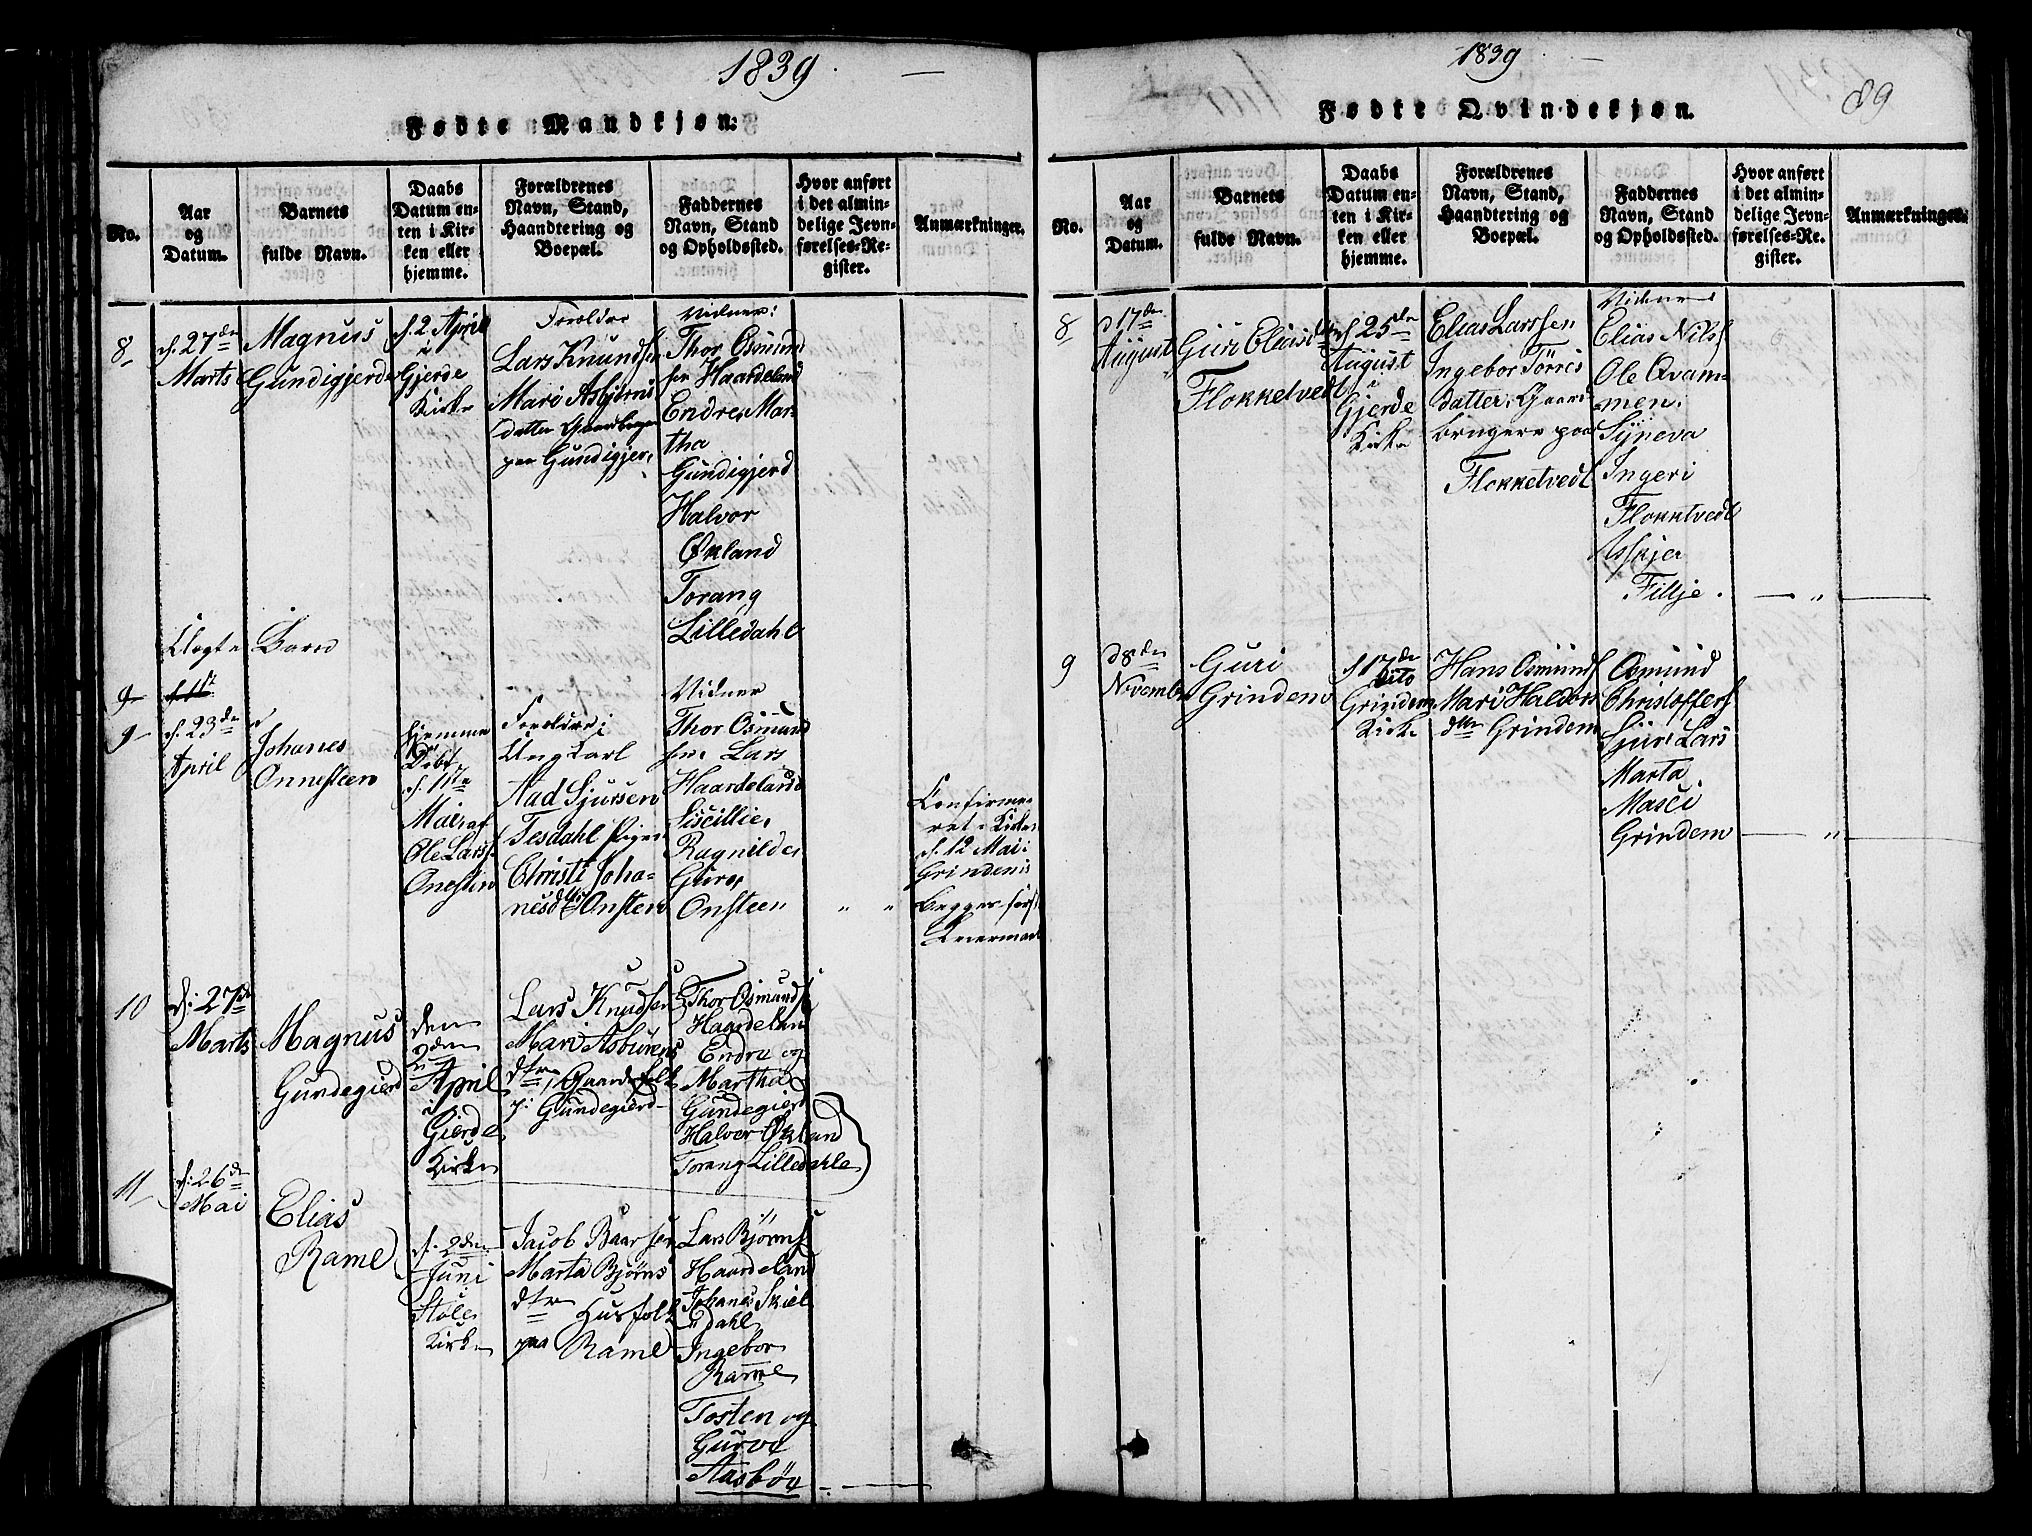 1839.
Fødte Mandkjøn:
No.
Aar
og
Datum.
Barnets
fulde Navn.
Daabs
Datum en-
ten i Kir-
ken eller
hjemme.
Forældrenes
Navn, Stand,
Haandtering og
Boepæl.
Faddernes
Navn, Stand
og Opholdssted.
Hvor anført
i det almin-
delige Jevn-
førelses-Re-
gister.
Anmærkninger.
8
d. 27de
Marts
Magnus
Gundigjerde
d. 2 April
i
Gjerde
Kirke
Foreldre
Lars Knundsen
Mari Asbjørns
datter Gaardbrugere
paa Gundigjer.
Vidner:
Thor Osmund
sen Haardeland
Endre Mar
tha
Gundigjerd
Halvor
Økland
Torang
Lilledahl
Uegte Barn
9
9
d. 23de
April
Johanes
Onnesteen
hjemme
Døbt
d. 11te
Mai af
Ole Lars
Onesten
Foreldre:
Ungkarl
Aad Sjursen
Tesdahl Pigen
Christi Joha-
nesdtr Onsten
Vidner
Thor Osmund
sen Lars
Haardeland
Siscillie,
Ragnilde
Guro,
Onsteen
" "
Confirme-
ret i Kirke
d. 12 Mai i
Grindem
Begges første
Leiermaal
10
d. 27de
Marts
Magnus
Gundegierd
den
2den
April
i
Gierde
Kirke
Lars Knudsen
Mari Asburens
dtr, Gaardfolk
p: Gundegierd
Thor Osmunds
Haardeland
Endre og
Martha
Gundegierd
Halver Økland
Torang Lilledahle
11
d. 26de
Mai
Elias
Rame
d. 2den
Juni
Støle
Kirke
Jacob Baarsen
Marta Bjørns
dtr
Husfolk
paa Rame
Lars Bjørns
Haardeland
Johanes Skiel
dahl
Ingebor
Rame
Tosten og
Gurve
Aasbøe
1839
89
Fødte Qvindekjøn.
No.
Aar
og
Datum.
Barnets
fulde Navn.
Daabs
Datum en-
ten i Kir-
ken eller
hjemme.
Forældrenes
Navn, Stand,
Haandtering og
Boepæl.
Faddernes
Navn, Stand
og Opholdssted.
Hvor anført
i det almin-
delige Jevn-
førelses-Re-
gister.
Anmærkninger.
8
d 17de
August
Guri Eliasdtr
Flokketvedt
d 25de
August
i
Gjerde
Kirke
Elias Larssen
Ingebor Tørris
datter, Gaard
brugere paa
Flokketvedt
Vidner
Elias Nils
Ole Qvam-
men.
Syneva
Ingeri
Flokktvedt
Askjer
Fillje.
"
9
d 8de
November
Guri
Grindem
d 17de
Dito
Grindem
Kirke
Hans Osmunds
Mari Haldors
dtr Grindem
Osmund
Christoffers
Sjur Lars
Marta
Masci
Grindem
"